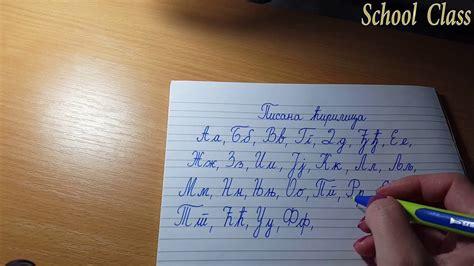 School Class
Писана ћирилица
Аа, Бб, Вв, Гг, Дд, Ђђ, Ее,
Жж, Зз, Ии, Јј, Кк, Лл, Љљ,
Мм, Нн, Њњ, Оо, Пп, Рр,
Тт, Ћћ, Уу, Фф,